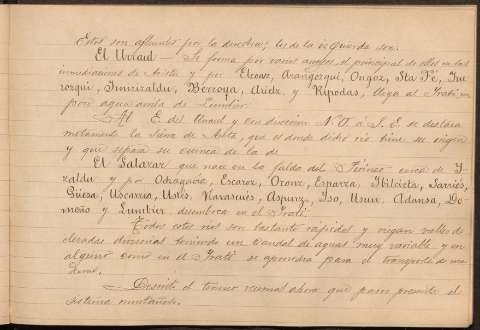 Estos son afluentes por la derecha; los de la izquierda son.
El Urraul — Se forma por varios arroyos, el principal de ellos en las
inmediaciones de Arieta y por Elcoaz, Aranzozqui, Ongoz, Sta Fé, Imi-
rizaldu, Berroya, Artedz y Ripodas, llega al Irati un
poco agua arriba de Lumbier.
Al E. del Urraul y con direccion N. O. á S. E. se destaca
la Sierra de Alta, que es donde dicho rio tiene su origen
y que separa su cuenca de la de
El Salazar que nace en la falda del Pirineo cerca de I-
zaldu y por Ochagavia, Escaroz, Oronz, Esparza, Ibilcieta, Sarriés,
Güesa, Uscarres, Ustés, Navascués, Aspurz, Iso, Usun, Adansa, Do-
meño y Lumbier desemboca en el Irati.
Todos estos rios son bastante rapidos y riegan valles de
teniendo un caudal de aguas muy variable y en
alguno como en el Irati se aprovecha para el transporte de ma-
deras.
Descrito el terreno vamos ahora que pasar presente el
sistema montañoso.